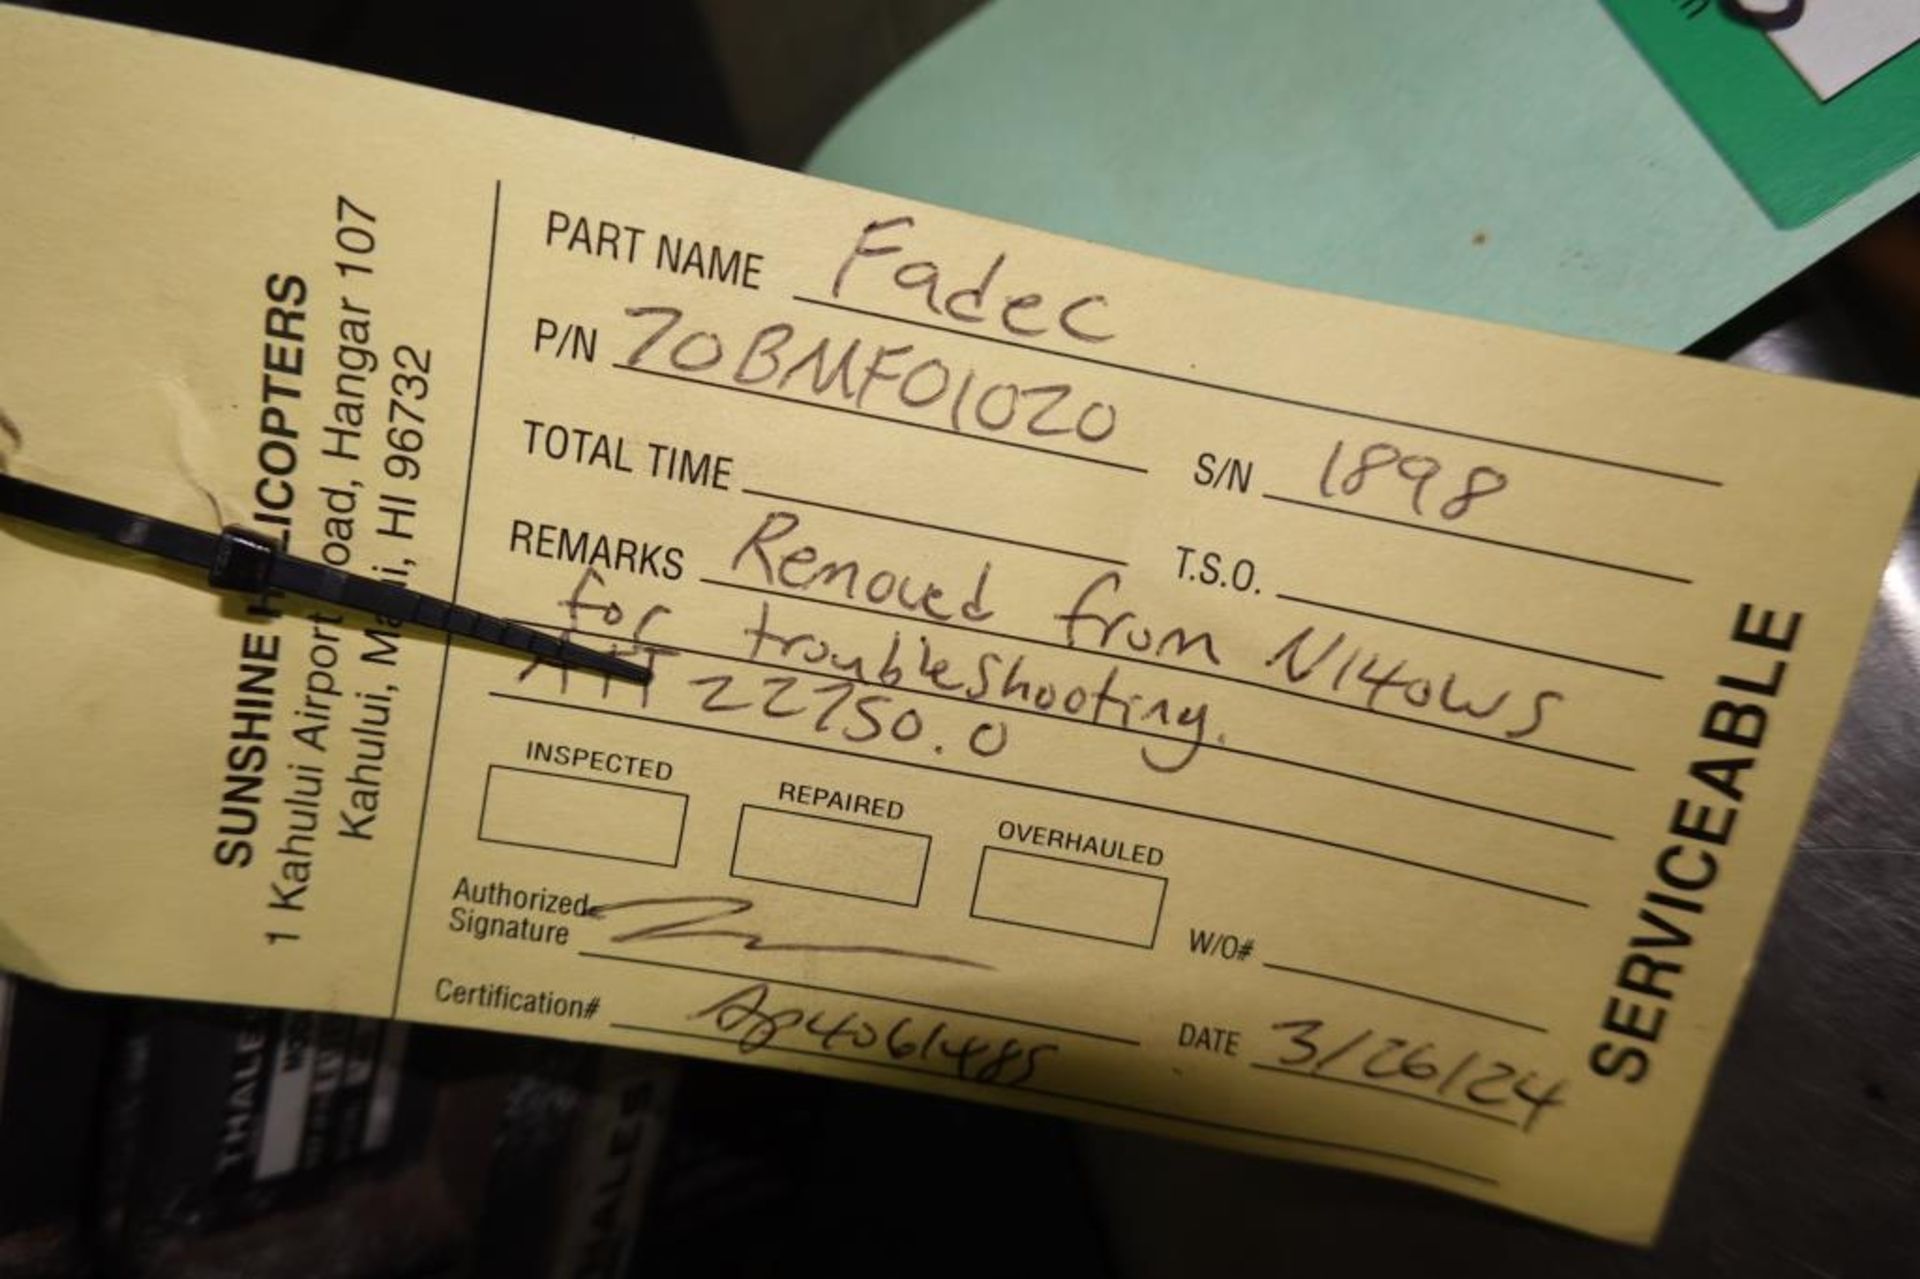 SUNSHINE HELICOPTERS
1 Kahului Airport Road, Hangar 107
Kahului, Maui, HI 96732
PART NAME Fadec
P/N 70BMF01020 S/N 1898
TOTAL TIME T.S.O.
REMARKS Removed from N140WS
for troubleshooting.
ATT 22750.0
INSPECTED REPAIRED OVERHAULED
W/O#
Authorized
Signature
Certification# Ap4061485 DATE 3/26/24
SERVICEABLE
THALES
THALES